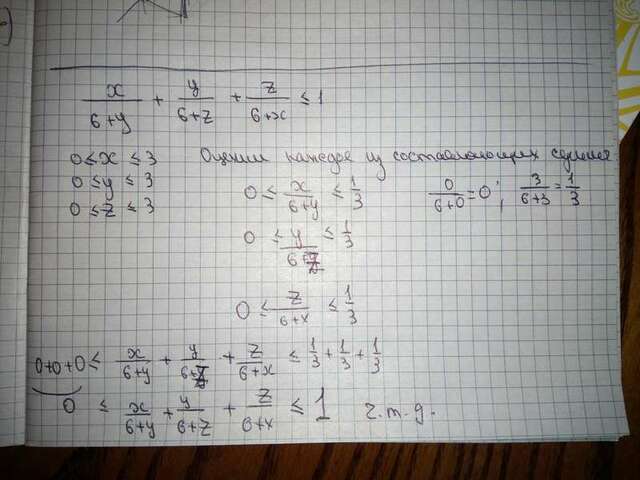 x/(6+y) + y/(6+z) + z/(6+x) ≤ 1
0 ≤ x ≤ 3
0 ≤ y ≤ 3
0 ≤ z ≤ 3
Оценим каждое из составляющих суммы
0 ≤ x/(6+y) ≤ 1/3
0/(6+0) = 0; 3/(6+3) = 1/3
0 ≤ y/(6+z) ≤ 1/3
0 ≤ z/(6+x) ≤ 1/3
0+0+0 ≤ x/(6+y) + y/(6+z) + z/(6+x) ≤ 1/3 + 1/3 + 1/3
0 ≤ x/(6+y) + y/(6+z) + z/(6+x) ≤ 1 z.m.g.